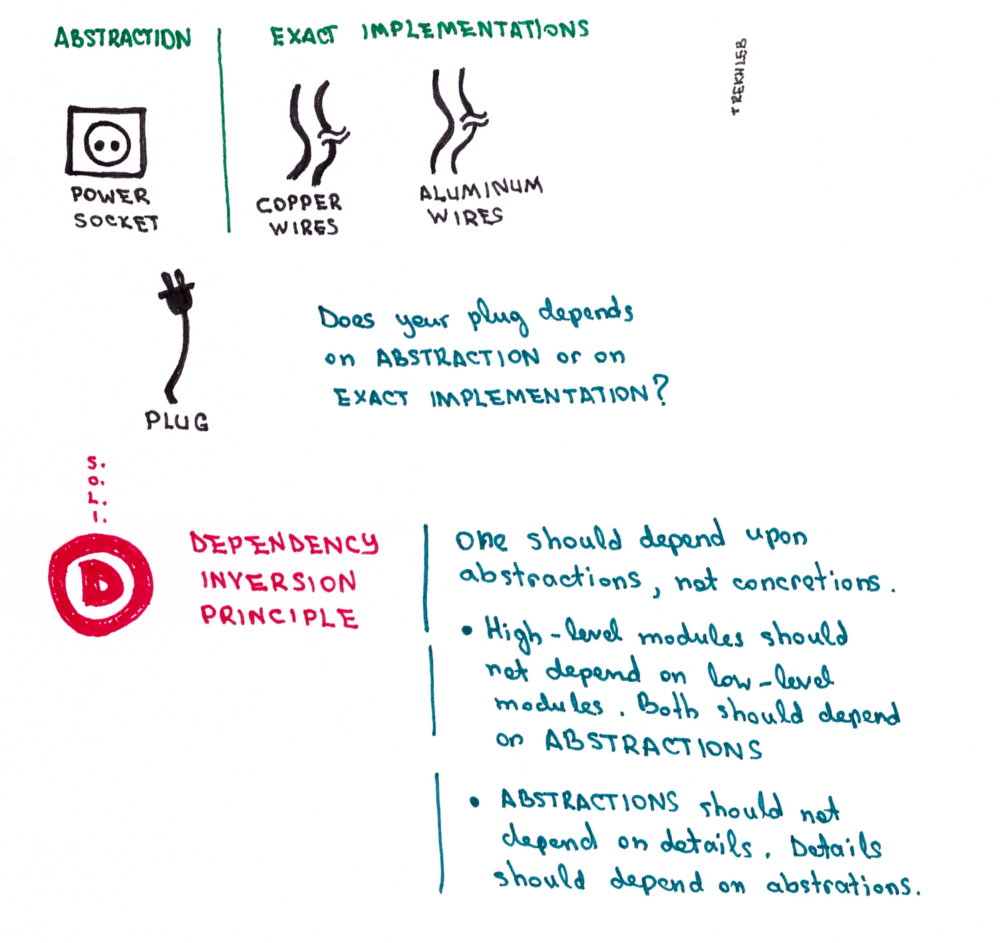 ABSTRACTION
EXACT IMPLEMENTATIONS
TREKHLEB
POWER
SOCKET
COPPER
WIRES
ALUMINUM
WIRES
PLUG
Does your plug depends
on ABSTRACTION or on
EXACT IMPLEMENTATION?
S.
O.
L.
I.
D
DEPENDENCY
INVERSION
PRINCIPLE
One should depend upon
abstractions, not concretions.
• High-level modules should
not depend on low-level
modules. Both should depend
on ABSTRACTIONS
• ABSTRACTIONS should not
depend on details. Details
should depend on abstrations.